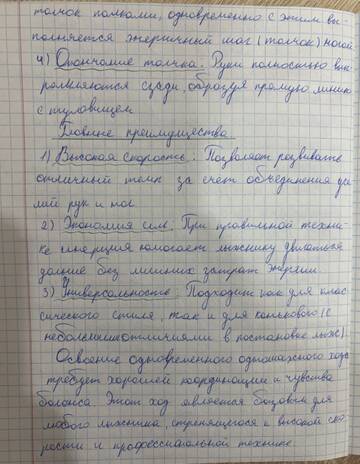 толчок палками, одновременно с этим вы-
полняется энергичный шаг (толчок) ногой
4) Окончание толчка. Руки полностью вып-
рямляются сзади, образуя прямую линию
с туловищем
Главные преимущества
1) Высокая скорость: Позволяет развивать
отличный темп за счет объединения уси-
лий рук и ног
2) Экономия сил: При правильной техни-
ке инерция помогает лыжнику двигаться
дальше без лишних затрат энергии
3) Универсальность: Подходит как для клас-
сического стиля, так и для конькового (с
небольшими отличиями в постановке лыж)
Освоение одновременного одношажного хода
требует хорошей координации и чувства
баланса Этот ход является базовым для
любого лыжника, стремящегося к высокой ско-
рости и профессиональной технике.